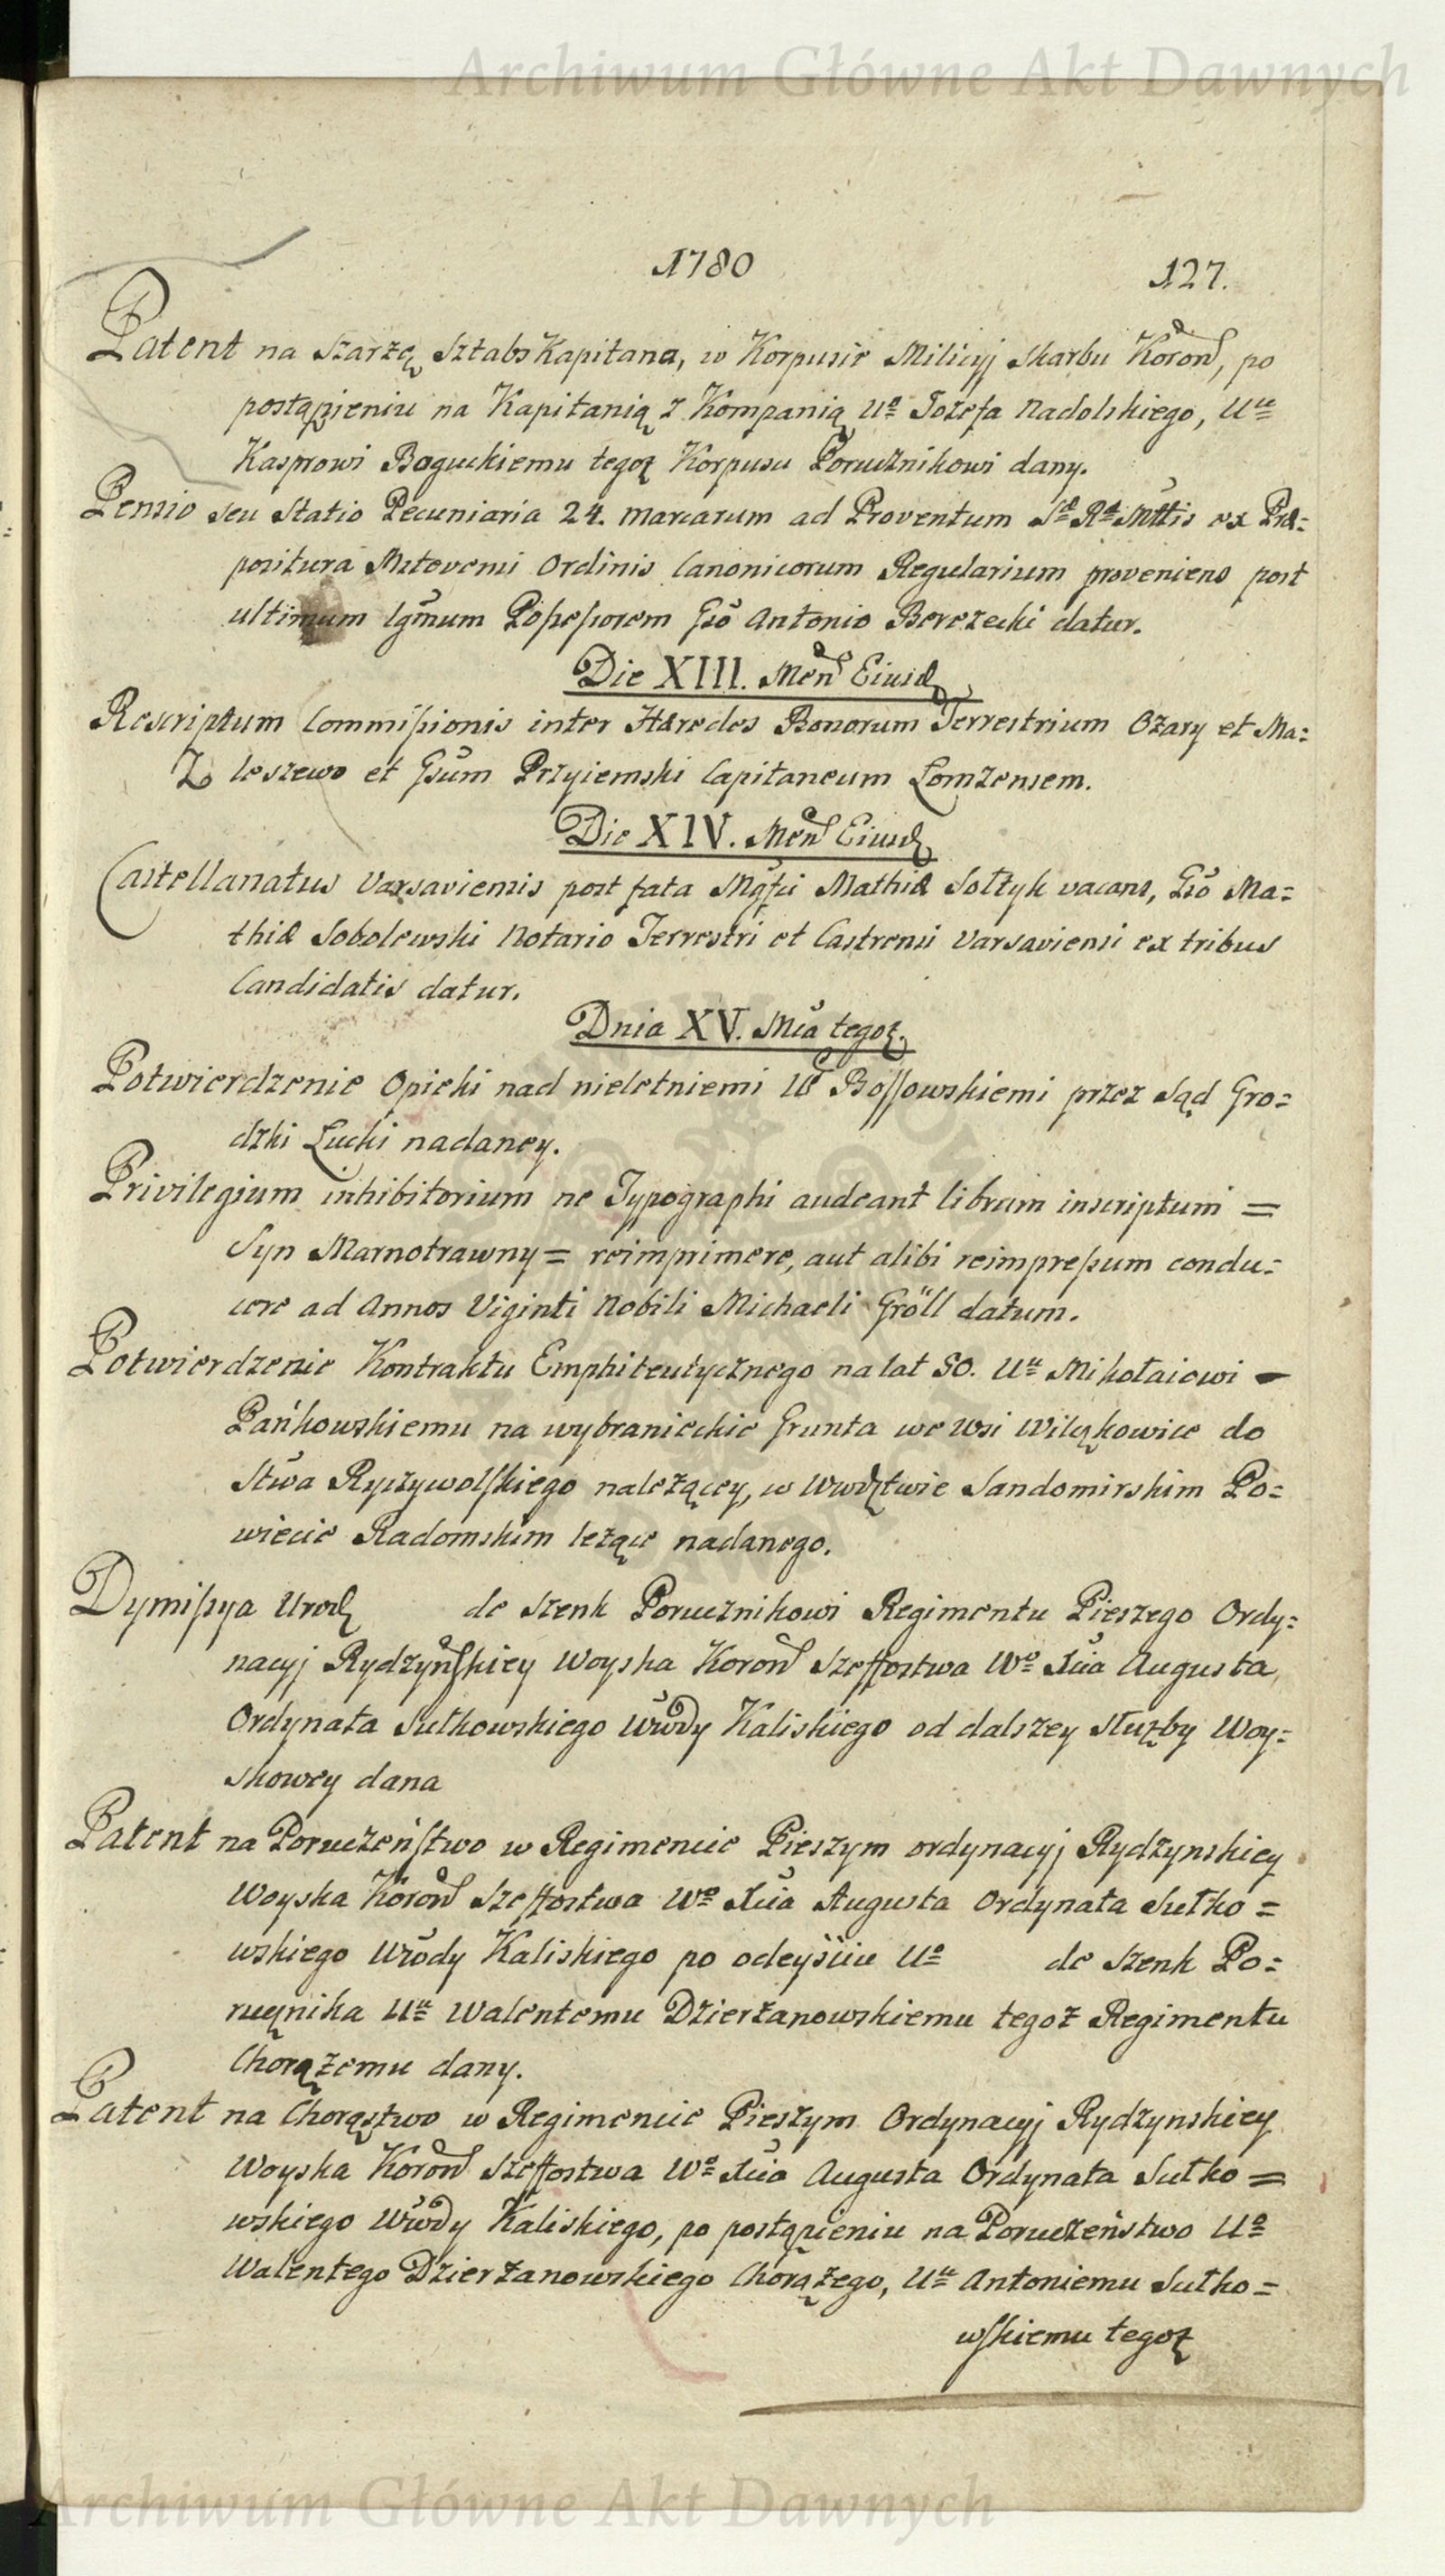 Archiwum Główne Akt Dawnych
1780
127.
Patent na Szarżę SztabsKapitana, w Korpusie Milicyj Skarbu Koron, po
postąpieniu na Kapitanią z Kompanią Uo Jozefa Nadolskiego, Uu
Kasprowi Boguckiemu tegoż Korpusu Porucznikowi dany.
Pensio seu Statio Pecuniaria 24. Marcarum ad Proventum Sæ Ræ Mttis ex Præ=
positura Mstoveni Ordinis Canonicorum Regularium proveniens post
ultimum Possessorem Gso Antonio Berezecki datur.
Die XIII. Men Eiusd
Rescriptum Commissionis inter Hæredes Bonorum Terrestrium Ożary et Ma=
leszewo et Gsum Przyiemski Capitaneum Łomzensem.
Die XIV. Men Eiusd
Castellanatus Varsaviensis post fata Mgfci Mathiæ Sołtyk vacans, Gso Ma=
thiæ Sobolewski Notario Terrestri et Castrensi Varsaviensi ex tribus
Candidatis datur.
Dnia XV. Mca tegoż.
Potwierdzenie Opieki nad nieletniemi UU Bossowskiemi przez Sąd Gro=
dzki Łucki nadaney.
Privilegium inhibitorium ne Typographi audeant librum inscriptum =
Syn Marnotrawny = reimprimere, aut alibi reimpressum condu=
cere ad Annos Viginti Nobili Michaeli Gröll datum.
Potwierdzenie Kontraktu Emphiteutycznego na lat 50. Uu Mikołaiowi -
Pańkowskiemu na wybranieckie Grunta we Wsi Wilczkowice do
Stwa Ryczywolskiego należącey, w Wwdztwie Sandomirskim Po=
wiecie Radomskim leżące nadanego.
Dymissya Urod de Szenk Porucznikowi Regimentu Pieszego Ordy=
nacyj Rydzyńskiey Woyska Koron Szeffostwa Wo Xcia Augusta
Ordynata Sułkowskiego Wwdy Kaliskiego od dalszey służby Woy=
skowey dana
Patent na Poruczeństwo w Regimencie Pieszym Ordynacyj Rydzynskiey
Woyska Koron Szeffostwa Wo Xcia Augusta Ordynata Sułko=
wskiego Wwdy Kaliskiego po odeyściu Uo de Szenk Po=
rucznika Uu Walentemu Dzierżanowskiemu tegoż Regimentu
Chorążemu dany.
Patent na Chorąstwo w Regimencie Pieszym Ordynacyj Rydzynskiey
Woyska Koron Szeffostwa Wo Xcia Augusta Ordynata Sułko=
wskiego Wwdy Kaliskiego, po postąpieniu na Poruczeństwo Uo
Walentego Dzierżanowskiego Chorążego, Uu Antoniemu Sułko=
wskiemu tegoż
Archiwum Główne Akt Dawnych